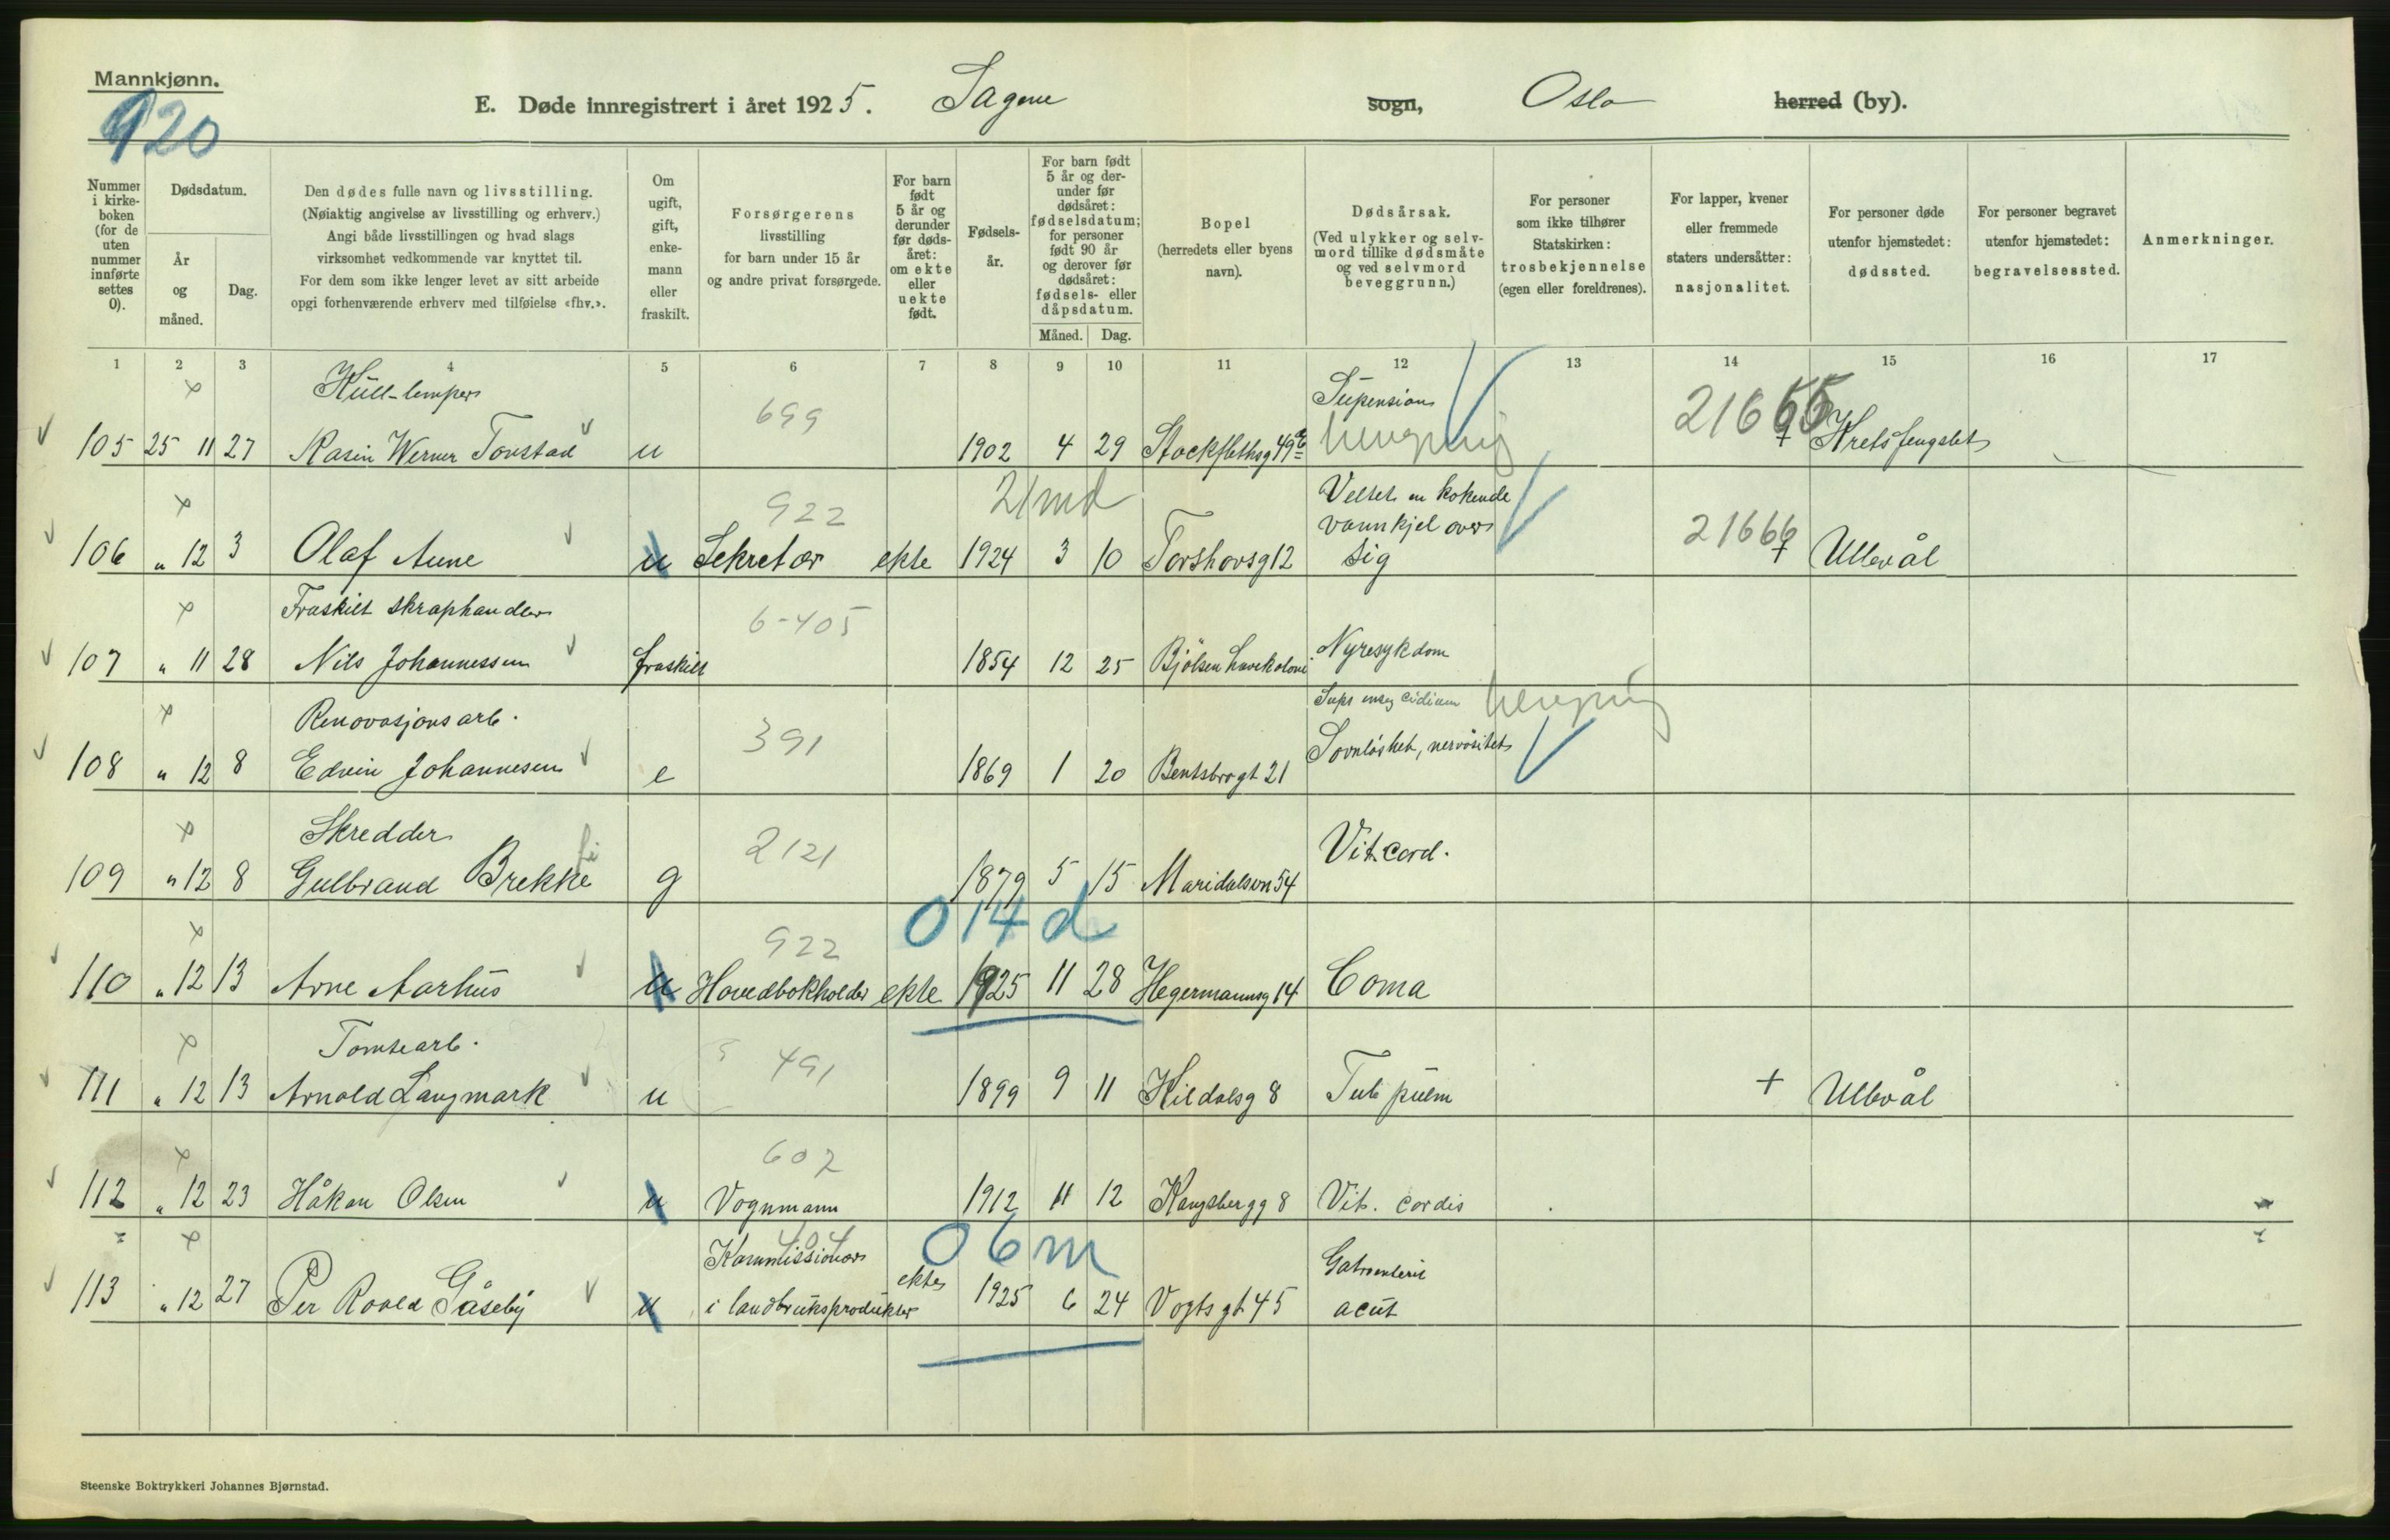 Mannkjønn.
920
E. Døde innregistrert i året 1925. Sagene sogn, Oslo herred (by).
Nummer i kirke-boken (for de uten nummer innførte settes 0).
Dødsdatum.
År og måned.
Dag.
Den dødes fulle navn og livsstilling.
(Nøiaktig angivelse av livsstilling og erhverv.)
Angi både livsstillingen og hvad slags
virksomhet vedkommende var knyttet til.
For dem som ikke lenger levet av sitt arbeide
opgi forhenværende erhverv med tilføielse «fhv.».
Om ugift, gift, enke-mann eller fraskilt.
Forsørgerens
livsstilling
for barn under 15 år
og andre privat forsørgede.
For barn født 5 år og derunder før døds-året: om ekte eller uekte født.
Fødsels-år.
For barn født 5 år og der-under før dødsåret: fødselsdatum; for personer født 90 år og derover før dødsåret: fødsels- eller dåpsdatum.
Måned. Dag.
Bopel
(herredets eller byens
navn).
Dødsårsak.
(Ved ulykker og selv-
mord tillike dødsmåte
og ved selvmord
beveggrunn.)
For personer
som ikke tilhører
Statskirken:
trosbekjennelse
(egen eller foreldrenes).
For lapper, kvener
eller fremmede
staters undersåtter:
nasjonalitet.
For personer døde
utenfor hjemstedet:
dødssted.
For personer begravet
utenfor hjemstedet:
begravelsessted.
Anmerkninger.
1 2 3 4 5 6 7 8 9 10 11 12 13 14 15 16 17
Kull-lemper 699 Supension 21665
105 25 11 27 Kasin Werner Torstad u 1902 4 29 Stockflethsg 49 hengning + Kretsfengslet
922 21 md Veltet en kokende
vannkjel over 21666
106 " 12 3 Olaf Aune u Sekretær ekte 1924 3 10 Torshovsg 12 sig + Ullevål
Fraskilt skraphandler 6-405
107 " 11 28 Nils Johannessen fraskilt 1854 12 25 Bjølsen havekoloni Nyresykdom
Renovasjonsarb. 391 hengning
108 " 12 8 Edvin Johannesen e 1869 1 20 Bentsbrogt 21 Søvnløshet, nervøsitet
Skredder 2121
109 " 12 8 Gulbrand Brekke g 1879 5 15 Maridalsvn 54 Vit. cord.
922 0 14 d
110 " 12 13 Arne Aarhus u Hovedbokholder ekte 1925 11 28 Hegermannsg 14 Coma
Tomtearb. 491
111 " 12 13 Arnold Langmark u 1899 9 11 Hildalsg 8 Tub pulm + Ullevål
602
112 " 12 23 Håkon Olsen u Vognmann 1912 11 12 Kongsbergg 8 Vit. cordis
Kommissionær 0 6 m
113 " 12 27 Per Roald Gåseby u i landbruksprodukter ekte 1925 6 24 Vogts gt 45 acut
Steenske Boktrykkeri Johannes Bjørnstad.